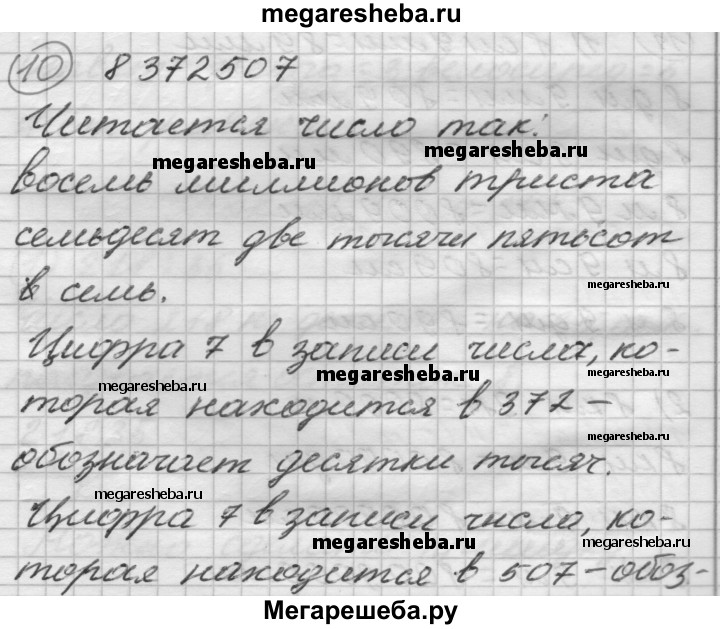 megaresheba.ru
10 8372507
Читается число так:
megaresheba.ru megaresheba.ru
восемь миллионов триста
семьдесят две тысячи пятьсот
megaresheba.ru
семь.
Цифра 7 в записи числа, ко-
megaresheba.ru megaresheba.ru
торая находится в 372 –
megaresheba.ru
обозначает десятки тысяч.
megaresheba.ru
Цифра 7 в записи числа, ко-
megaresheba.ru megaresheba.ru
торая находится в 507 – обоз-
Мегарешеба.ру